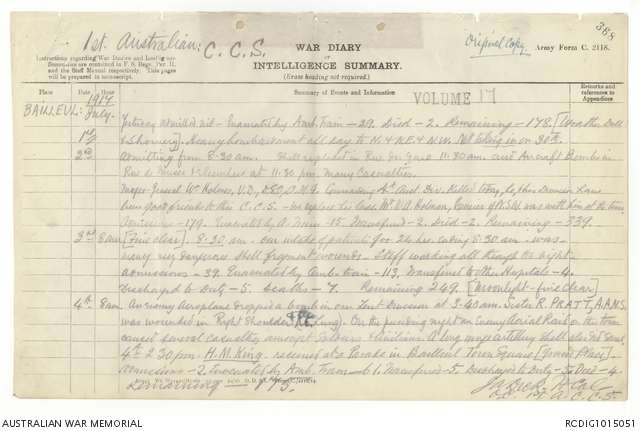 1st. Australian: C. C. S.
WAR DIARY
or
INTELLIGENCE SUMMARY.
(Erase heading not required.)
Original Copy
368
Army Form C. 2118.
Instructions regarding War Diaries and Intelligence
Summaries are contained in F. S. Regs., Part II.
and the Staff Manual respectively. Title pages
will be prepared in manuscript.
Place
Date
Hour
Summary of Events and Information
VOLUME 17
Remarks and
references to
Appendices
BAILLEUL: 1917
July.
Yesterday admitted Nil - Evacuated by Amb. Train - 29. Died - 2. Remaining - 178. [Weather Dull
1st & Showery]. Heavy bombardment all day to N & NE & NW. Not taking in on 30th.
2nd Admitting from 8.30 am. Shell in Rue 11.30 am. and Aircraft Bombs in
Rue de 11.30 pm. many Casualties.
Major General Wm Holmes, V.D., DSO Commanding 4th Aust. Div. Killed today,
been good friends to this C.C.S. - we replore his loss. Mr. W.A. Holman, Premier of N.S.W. was with him at the time.
Admissions - 179. Evacuated by A. Train - 15. Transfered - 2. Died - 2. Remaining - 339.
3rd 8am [Fine clear]. 8.30 am. our intake of patients for 24 hrs. ending 8.30 am. was
many very dangerous Shell fragment wounds - Staff working all through the night.
Admissions - 39. Evacuated by Amb. train - 113. Transfered to other Hospitals - 4.
Discharged to Duty - 5. Deaths - 7. Remaining 249. [Moonlight - fine clear]
4th 8am An enemy Aeroplane dropped a bomb in our Tent Division at 3.40 am. Sister R. PRATT, A.A.N.S.
was wounded in Right Shoulder (& Lung). On the preceding night an Enemy Aerial Raid on the town
caused several casualties amongst Soldiers & Civilians. A long range artillery shell also
4th 2.30 pm. H.M. King. received at a Parade in Bailleul Town Square [Grand Place].
Admissions - 2. Evacuated by Amb. Train - 61. Transfered - 5. Discharged to Duty - Died - 4
Remaining - 175.
O.C. 1st A.C.C.S.
AUSTRALIAN WAR MEMORIAL
RCDIG1015051